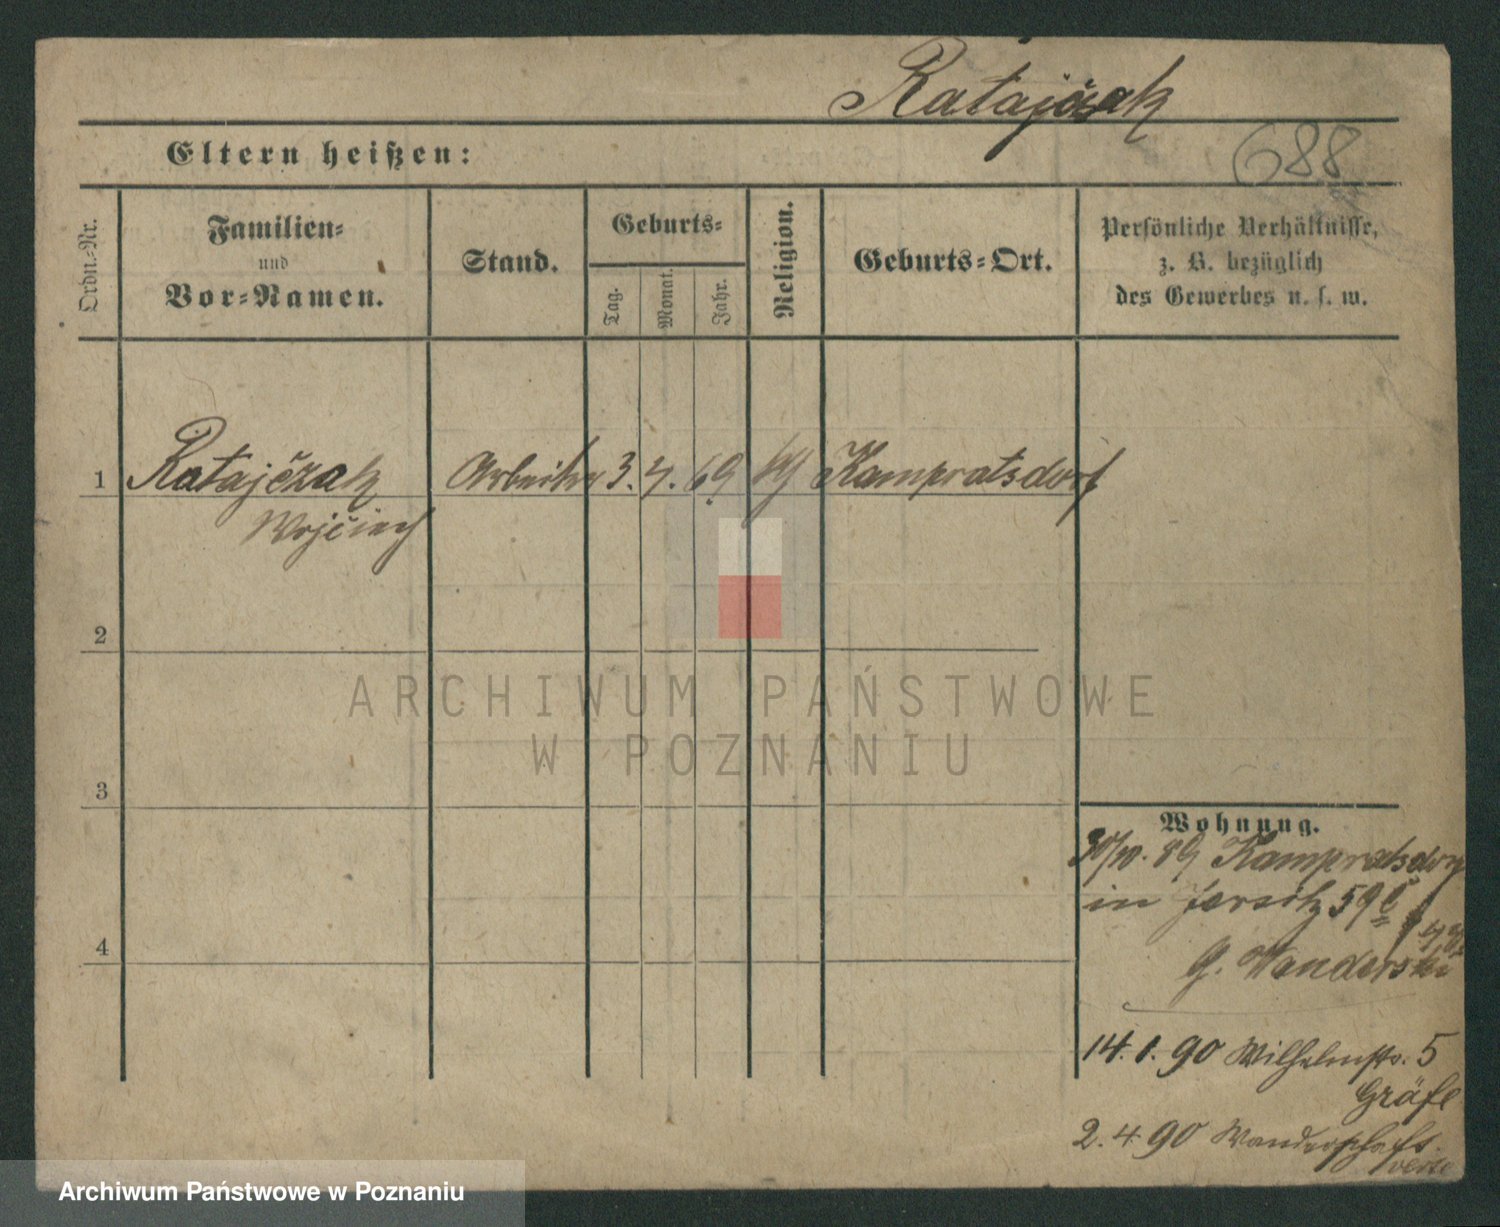 Ratajczak
Eltern heißen:
688
Ordn.-Nr.
Familien-
und
Vor-Namen.
Stand.
Geburts-
Tag.
Monat.
Jahr.
Religion.
Geburts-Ort.
Persönliche Verhältnisse,
z. B. bezüglich
des Gewerbes u. s. w.
1 Ratajčzak Arbeiter 3. 4. 69 Kampratsdorf
Wojciech
2
3
4
ARCHIWUM PAŃSTWOWE
W POZNANIU
Wohnung.
30/10. 89 Kampratsdorf
in Jersitz 59
G. Wanderski
14. 1. 90 Wilhelmstr. 5
Gräfe
2. 4 90 Wanderschaft
Archiwum Państwowe w Poznaniu